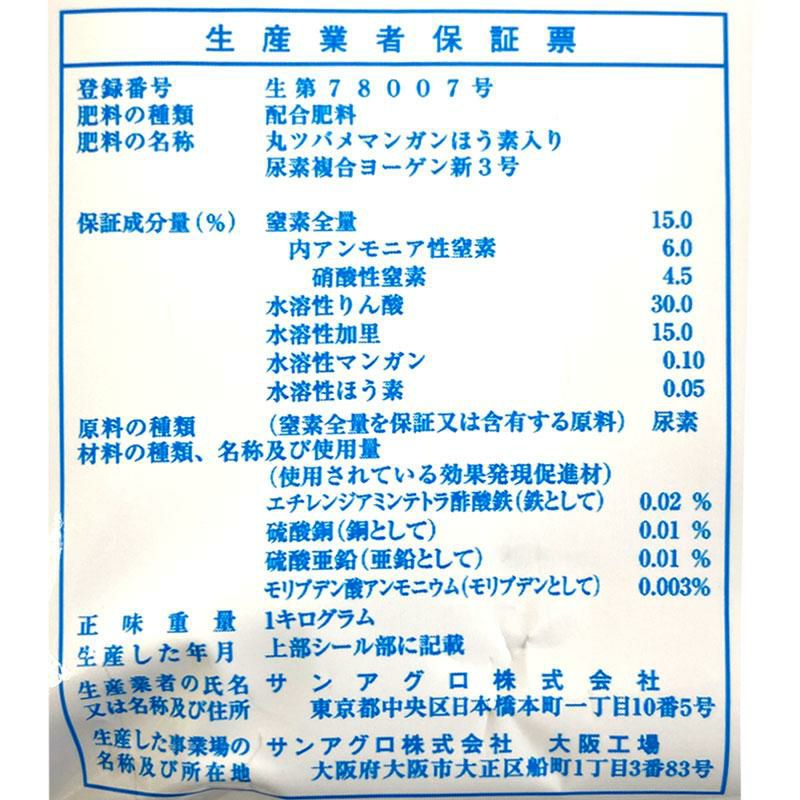 生産業者保証票
登録番号 生第78007号
肥料の種類 配合肥料
肥料の名称 丸ツバメマンガンほう素入り
尿素複合ヨーゲン新3号
保証成分量(%) 窒素全量 15.0
内アンモニア性窒素 6.0
硝酸性窒素 4.5
水溶性りん酸 30.0
水溶性加里 15.0
水溶性マンガン 0.10
水溶性ほう素 0.05
原料の種類 (窒素全量を保証又は含有する原料) 尿素
材料の種類、名称及び使用量
(使用されている効果発現促進材)
エチレンジアミンテトラ酢酸鉄(鉄として) 0.02 %
硫酸銅(銅として) 0.01 %
硫酸亜鉛(亜鉛として) 0.01 %
モリブデン酸アンモニウム(モリブデンとして) 0.003%
正味重量 1キログラム
生産した年月 上部シール部に記載
生産業者の氏名 サンアグロ株式会社
又は名称及び住所 東京都中央区日本橋本町一丁目10番5号
生産した事業場の サンアグロ株式会社 大阪工場
名称及び所在地 大阪府大阪市大正区船町1丁目3番83号